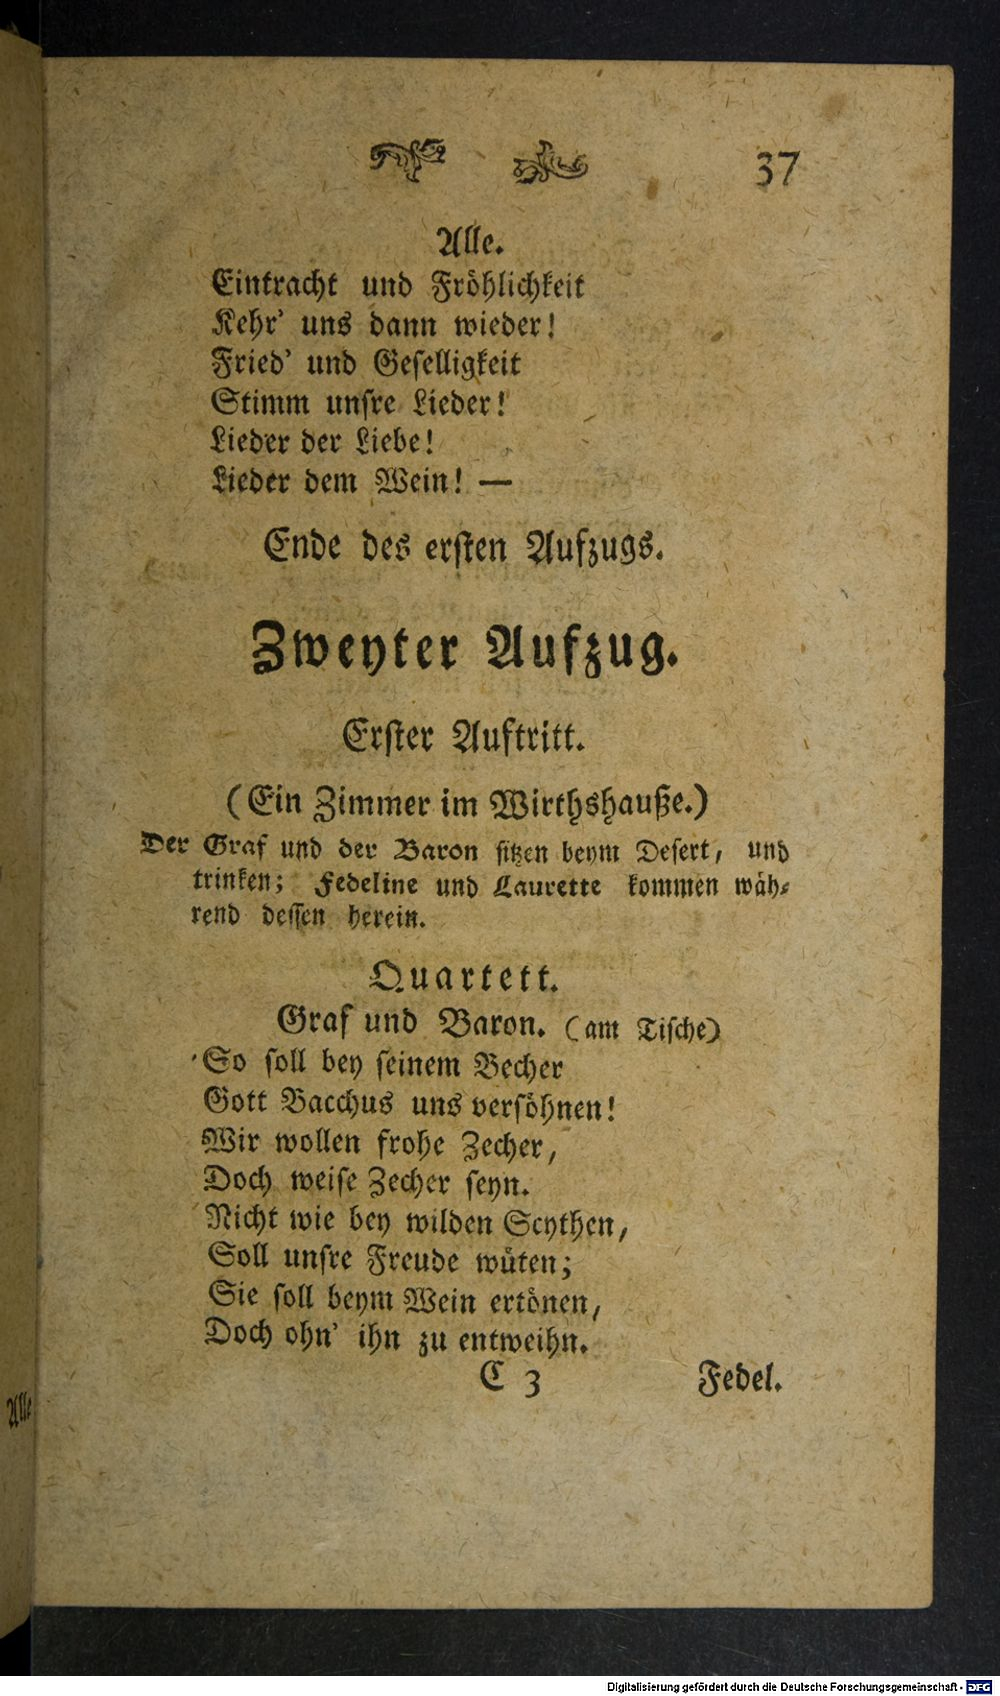 37
Alle.
Eintracht und Fröhlichkeit
Kehr' uns dann wieder!
Fried' und Geselligkeit
Stimm unsre Lieder!
Lieder der Liebe!
Lieder dem Wein! —
Ende des ersten Aufzugs.
Zweyter Aufzug.
Erster Auftritt.
(Ein Zimmer im Wirthshauße.)
Der Graf und der Baron sitzen beym Desert, und
trinken; Fedeline und Laurette kommen wäh-
rend dessen herein.
Quartett.
Graf und Baron. (am Tische)
So soll bey seinem Becher
Gott Bacchus uns versöhnen!
Wir wollen frohe Zecher,
Doch weise Zecher seyn.
Nicht wie bey wilden Scythen,
Soll unsre Freude wüten;
Sie soll beym Wein ertönen,
Doch ohn' ihn zu entweihn.
C 3 Fedel.
Alle
Digitalisierung gefördert durch die Deutsche Forschungsgemeinschaft - DFG